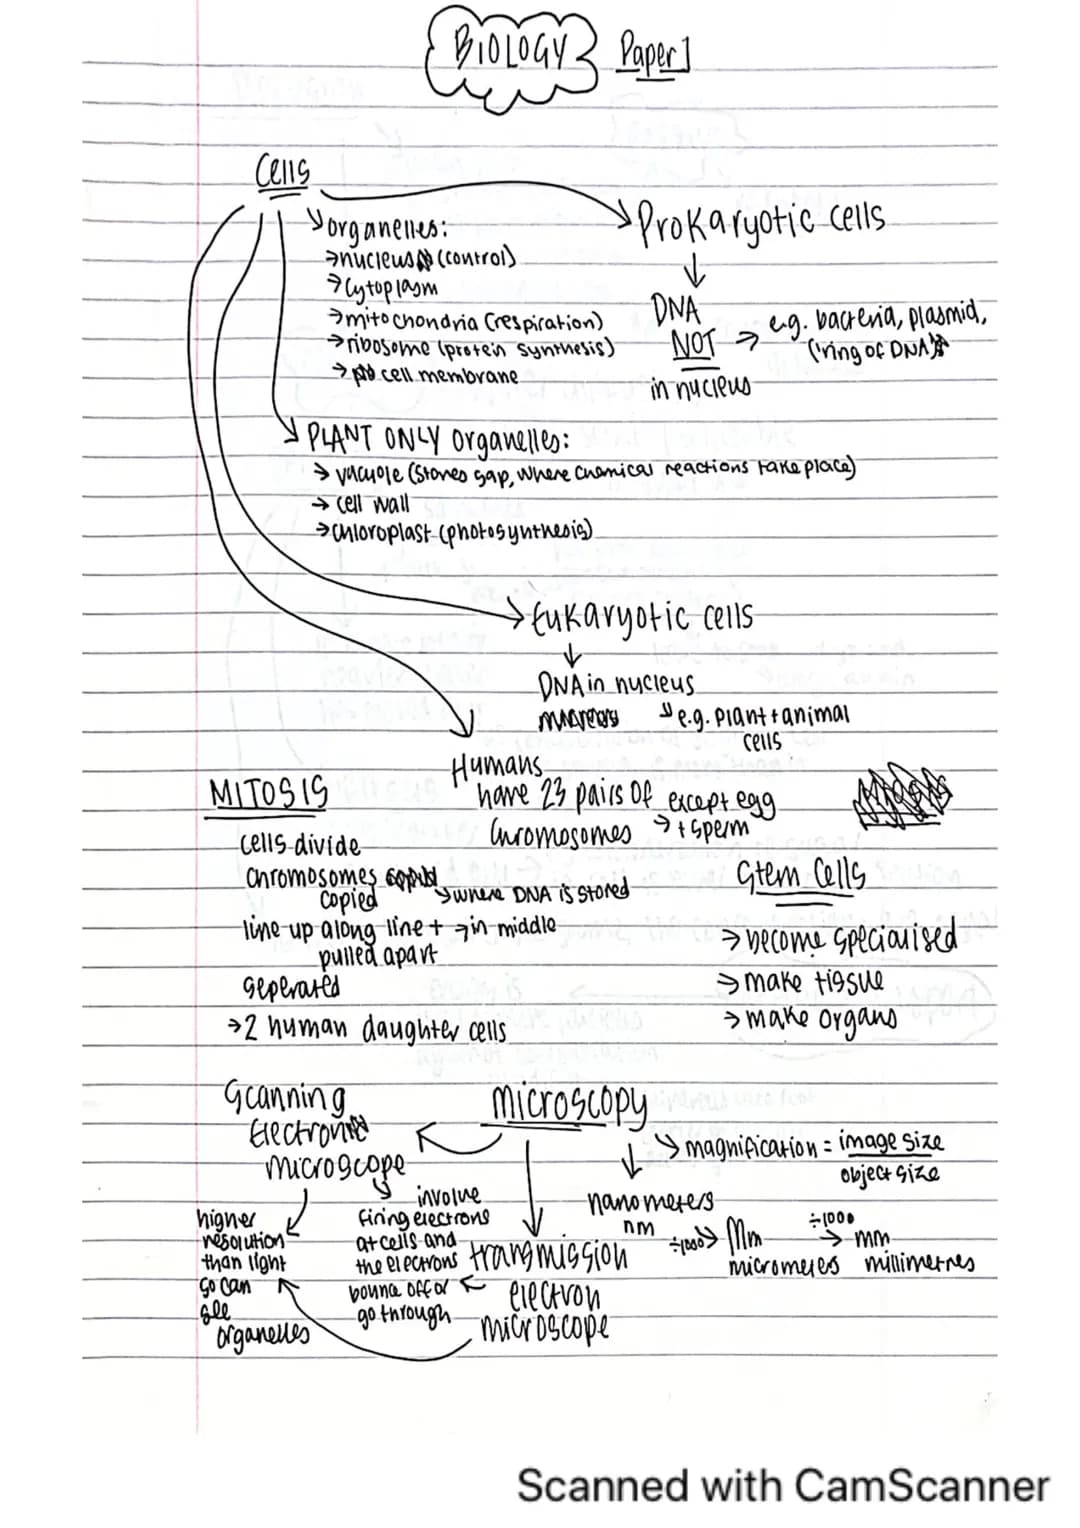 BIOLOGY Paper 1
Cells
organelles:
→nucleus (control)
→Cytoplasm
→mitochondria (respiration)
→ribosome (protein synthesis)
→ cell membrane
Prokaryotic cells
DNA
NOT
in nucleus
→ e.g. bacteria, plasmid,
('ring of DNA')
PLANT ONLY organelles:
→ vacuole (stores sap, where chemical reactions take place)
→ cell wall
→chloroplast (photosynthesis)
Eukaryotic cells
DNA in nucleus
e.g. plant + animal
cells
Humans
have 23 pairs of
Chromosomes
→ except egg
+ sperm
MITOSIS
cells divide
chromosomes
copied
→where DNA is stored
line up along line + →in middle
pulled apart
seperated
→2 human daughter cells
Stem Cells
→ become specialised
→ make tissue
→ make organs
microscopy
Scanning
Electron
microscope
higher
resolution
than light
so can
see
organelles
involve
firing electrons
at cells and
the electrons
bounce off or
go through
transmission
electron
microscope
magnification = image size
object size
nanometers
nm
÷1000→ Mm
micrometers
÷1000
→ mm
millimetres
Scanned with CamScanner